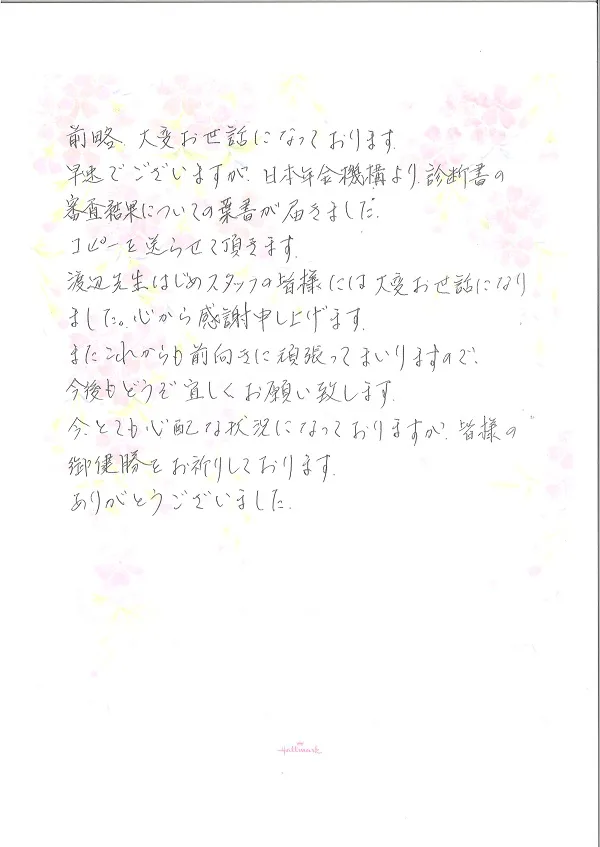 前略、大変お世話になっております.
早速でございますが、日本年金機構より、診断書の
審査結果についての葉書が届きました.
コピーを送らせて頂きます.
渡辺先生はじめスタッフの皆様には大変お世話になり
ました。心から感謝申し上げます.
またこれからも前向きに頑張ってまいりますので、
今後もどうぞ宜しくお願い致します.
今、とても心配な状況になっておりますが、皆様の
御健勝をお祈りしております.
ありがとうございました.
Hallmark